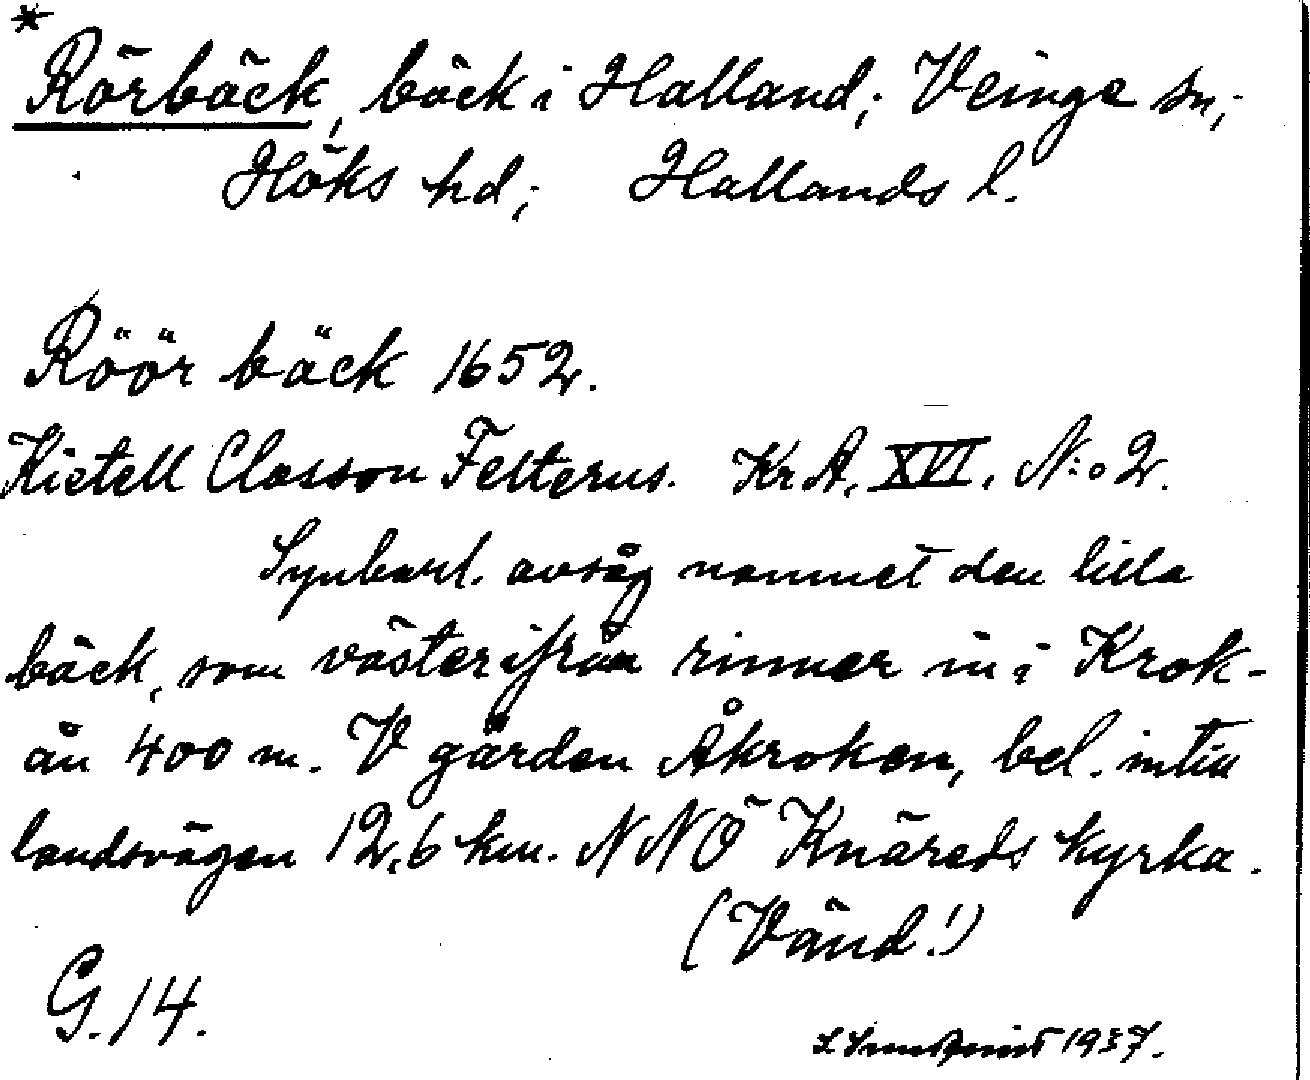 *
Rörbäck, bäck i Halland; Veinge sn;
Höks hd; Hallands l.
Röör bäck 1652.
Kietell Classon Felterus. Kr. A. XVI. N:o 2.
Synbarl. avsåg namnet den lilla
bäck, som västerifrån rinner in i Krok-
ån 400 m. V gården Åkroken, bel. intill
landsvägen 12,6 km. NNÖ Knäreds kyrka.
(Vänd!)
G. 14.
1937.